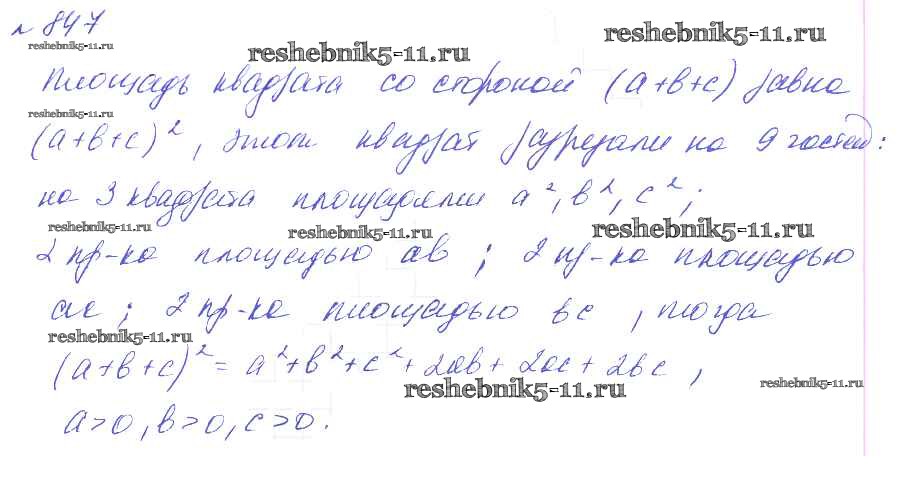 № 847
reshebnik5-11.ru
reshebnik5-11.ru reshebnik5-11.ru
Площадь квадрата со стороной (a+b+c) равна
reshebnik5-11.ru
(a+b+c)², этот квадрат разрезали на 9 частей:
на 3 квадрата площадями a², b², c²;
reshebnik5-11.ru reshebnik5-11.ru reshebnik5-11.ru
2 пр-ка площадью ab; 2 пр-ка площадью
ac; 2 пр-ка площадью bc, тогда
reshebnik5-11.ru
(a+b+c)² = a²+b²+c²+2ab+2ac+2bc,
reshebnik5-11.ru reshebnik5-11.ru
a>0, b>0, c>0.